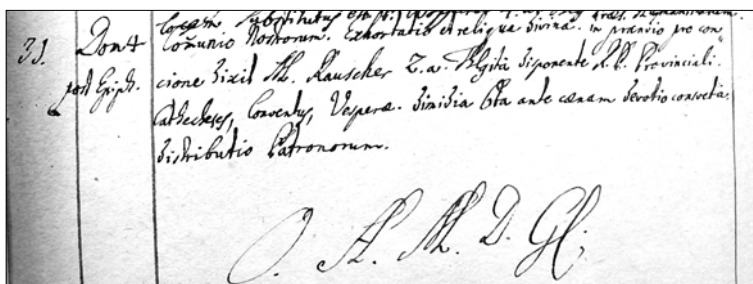 locum substitutus est P.
31. Dom 4 Com̃unio Nostrorum. Exhortatio et reliqua divina. in prandio pro con
post Epiph. cione dixit M. Rauscher 2. a. disponente R. P. Provinciali.
Catecheses, Conventus, Vesperae. dimidia 6ta ante caenam devotio consveta
distributio Patronorum.
O. A. M. D. Gl.